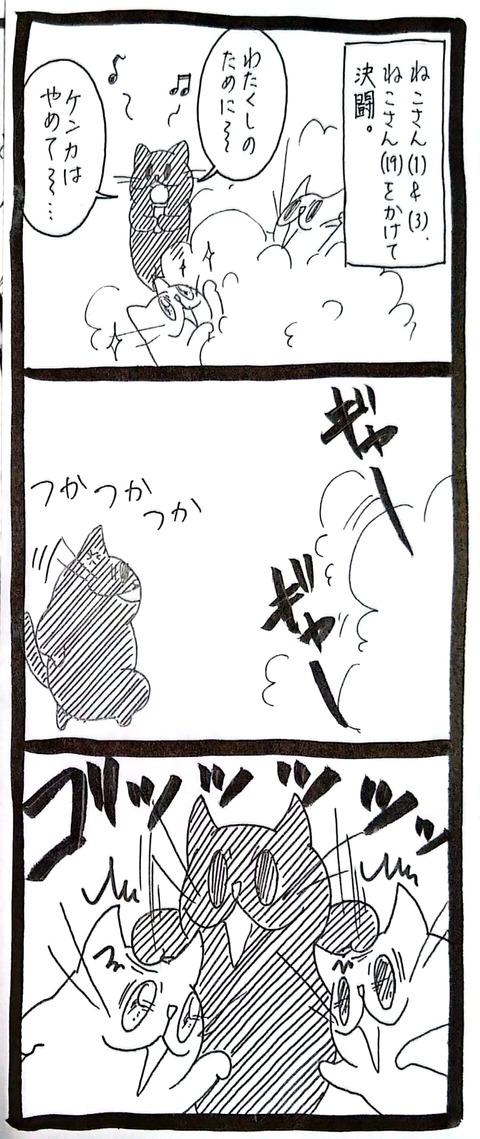 ねこさん(1)&(3).
ねこさん(19)をかけて
決闘。
わたくしの
ために〜〜
ケンカは
やめて〜〜…
ギャー
ギャー
つかつか
つか
ゴッッッッッ